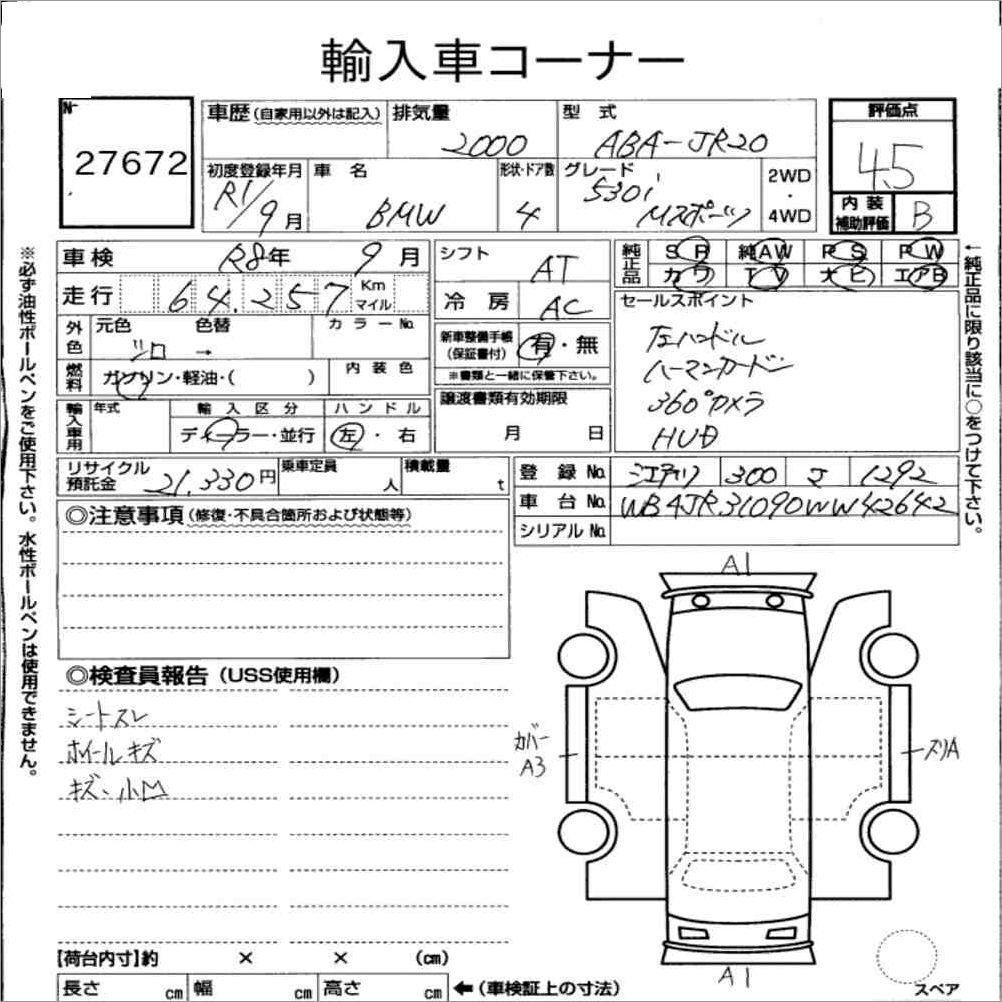 輸入車コーナー
No
27672
車歴 (自家用以外は記入)
排気量
2000
型 式
ABA-JR20
評価点
4.5
初度登録年月
R1/9月
車 名
BMW
形状・ドア数
4
グレード
530i
Mスポーツ
2WD
・
4WD
内 装
補助評価
B
車検
R8年 9月
シフト
AT
純正品
SR 純AW PS PW
カワ TV ナビ エアB
走行
64,257
Km
マイル
冷 房
AC
セールスポイント
左ハンドル
ハーマンカードン
360°カメラ
HUD
外色
元色 色替
シロ →
カラーNo.
新車整備手帳
(保証書付)
有・無
※書類と一緒に保管下さい。
燃料
ガソリン・軽油・( )
内 装 色
譲渡書類有効期限
月 日
輸入車用
年式
輸 入 区 分
ディーラー・並行
ハ ン ド ル
左・右
リサイクル
預託金
21,330円
乗車定員
人
積載量
t
登 録 No.
300 1292
車 台 No.
WB4JR31090WW42642
シリアル No.
◎注意事項 (修復・不具合箇所および状態等)
◎検査員報告 (USS使用欄)
シートスレ
ホイールキズ
キズ、小凹
A1
カバー
A3
スリA
A1
【荷台内寸】約 × × (cm)
長さ cm 幅 cm 高さ cm ←(車検証上の寸法)
スペア
※必ず油性ボールペンをご使用下さい。水性ボールペンは使用できません。
←純正品に限り該当に○をつけて下さい。